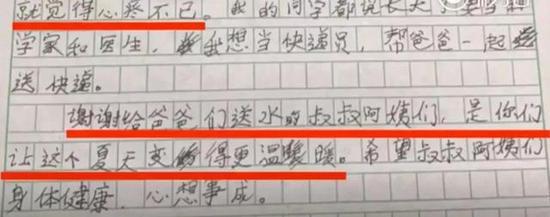 就觉得心疼不已。我的同学都说长大了要当科
学家和医生，我想当快递员，帮爸爸一起
送快递。
谢谢给爸爸们送水的叔叔阿姨们，是你们
让这个夏天变得更温暖。希望叔叔阿姨们
身体健康，心想事成。